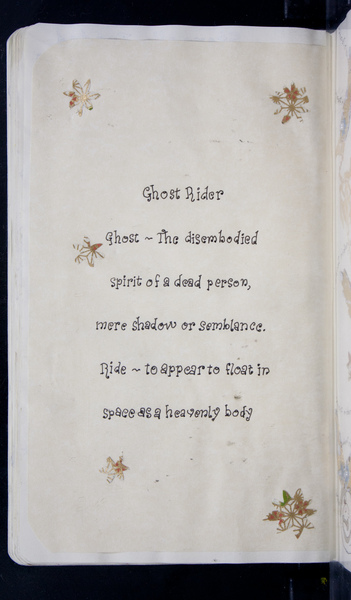 Ghost Rider
Ghost ~ The disembodied
spirit of a dead person,
mere shadow or semblance.
Ride ~ to appear to float in
space as a heavenly body